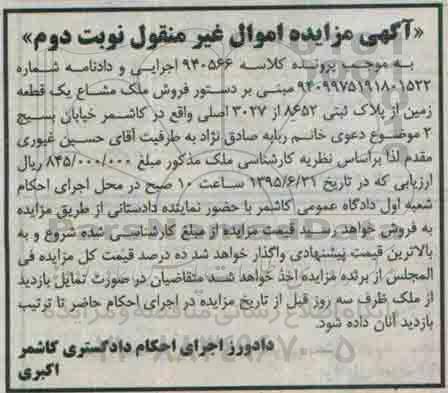 «آگهی مزایده اموال غیر منقول نوبت دوم»
به موجب پرونده کلاسه ۹۴۰۵۶۶ اجرایی و دادنامه شماره
۹۴۰۹۹۷۵۱۹۱۸۰۱۵۲۲ مبنی بر دستور فروش ملک مشاع یک قطعه
زمین از پلاک ثبتی ۸۶۵۲ از ۳۰۲۷ اصلی واقع در کاشمر خیابان بسیج
۲ موضوع دعوی خانم ربابه صادق نژاد به طرفیت آقای حسین غیوری
مقدم لذا براساس نظریه کارشناسی ملک مذکور مبلغ ۸۴۵/۰۰۰/۰۰۰ ریال
ارزیابی که در تاریخ ۱۳۹۵/۶/۲۱ ساعت ۱۰ صبح در محل اجرای احکام
شعبه اول دادگاه عمومی کاشمر با حضور نماینده دادستانی از طریق مزایده
به فروش خواهد رسید قیمت مزایده از مبلغ کارشناسی شده شروع و به
بالاترین قیمت پیشنهادی واگذار خواهد شد ده درصد قیمت کل مزایده فی
المجلس از برنده مزایده اخذ خواهد شد متقاضیان در صورت تمایل بازدید
از ملک ظرف سه روز قبل از تاریخ مزایده در اجرای احکام حاضر تا ترتیب
بازدید آنان داده شود.
دادورز اجرای احکام دادگستری کاشمر
اکبری